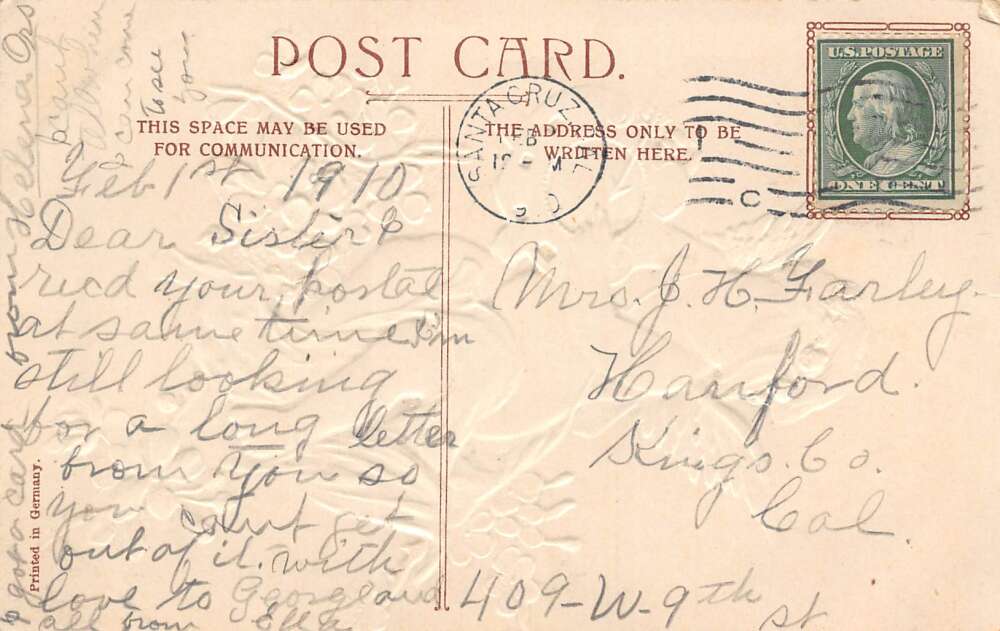 POST CARD.
THIS SPACE MAY BE USED
FOR COMMUNICATION.
THE ADDRESS ONLY TO BE
WRITTEN HERE.
U.S. POSTAGE
ONE CENT
SANTA CRUZ
C
Feb 1st 1910
Dear Sister &
recd your postal
at same time I'm
still looking
for a long letter
from you so
you cant get
out of it. with
love to George and
all from Ella
I got a card from Helena Ors
I can't
I can come
to see
you
Mrs. J. H. Farley
Hanford.
Kings. Co.
Cal.
409-W-9th
st
Printed in Germany.